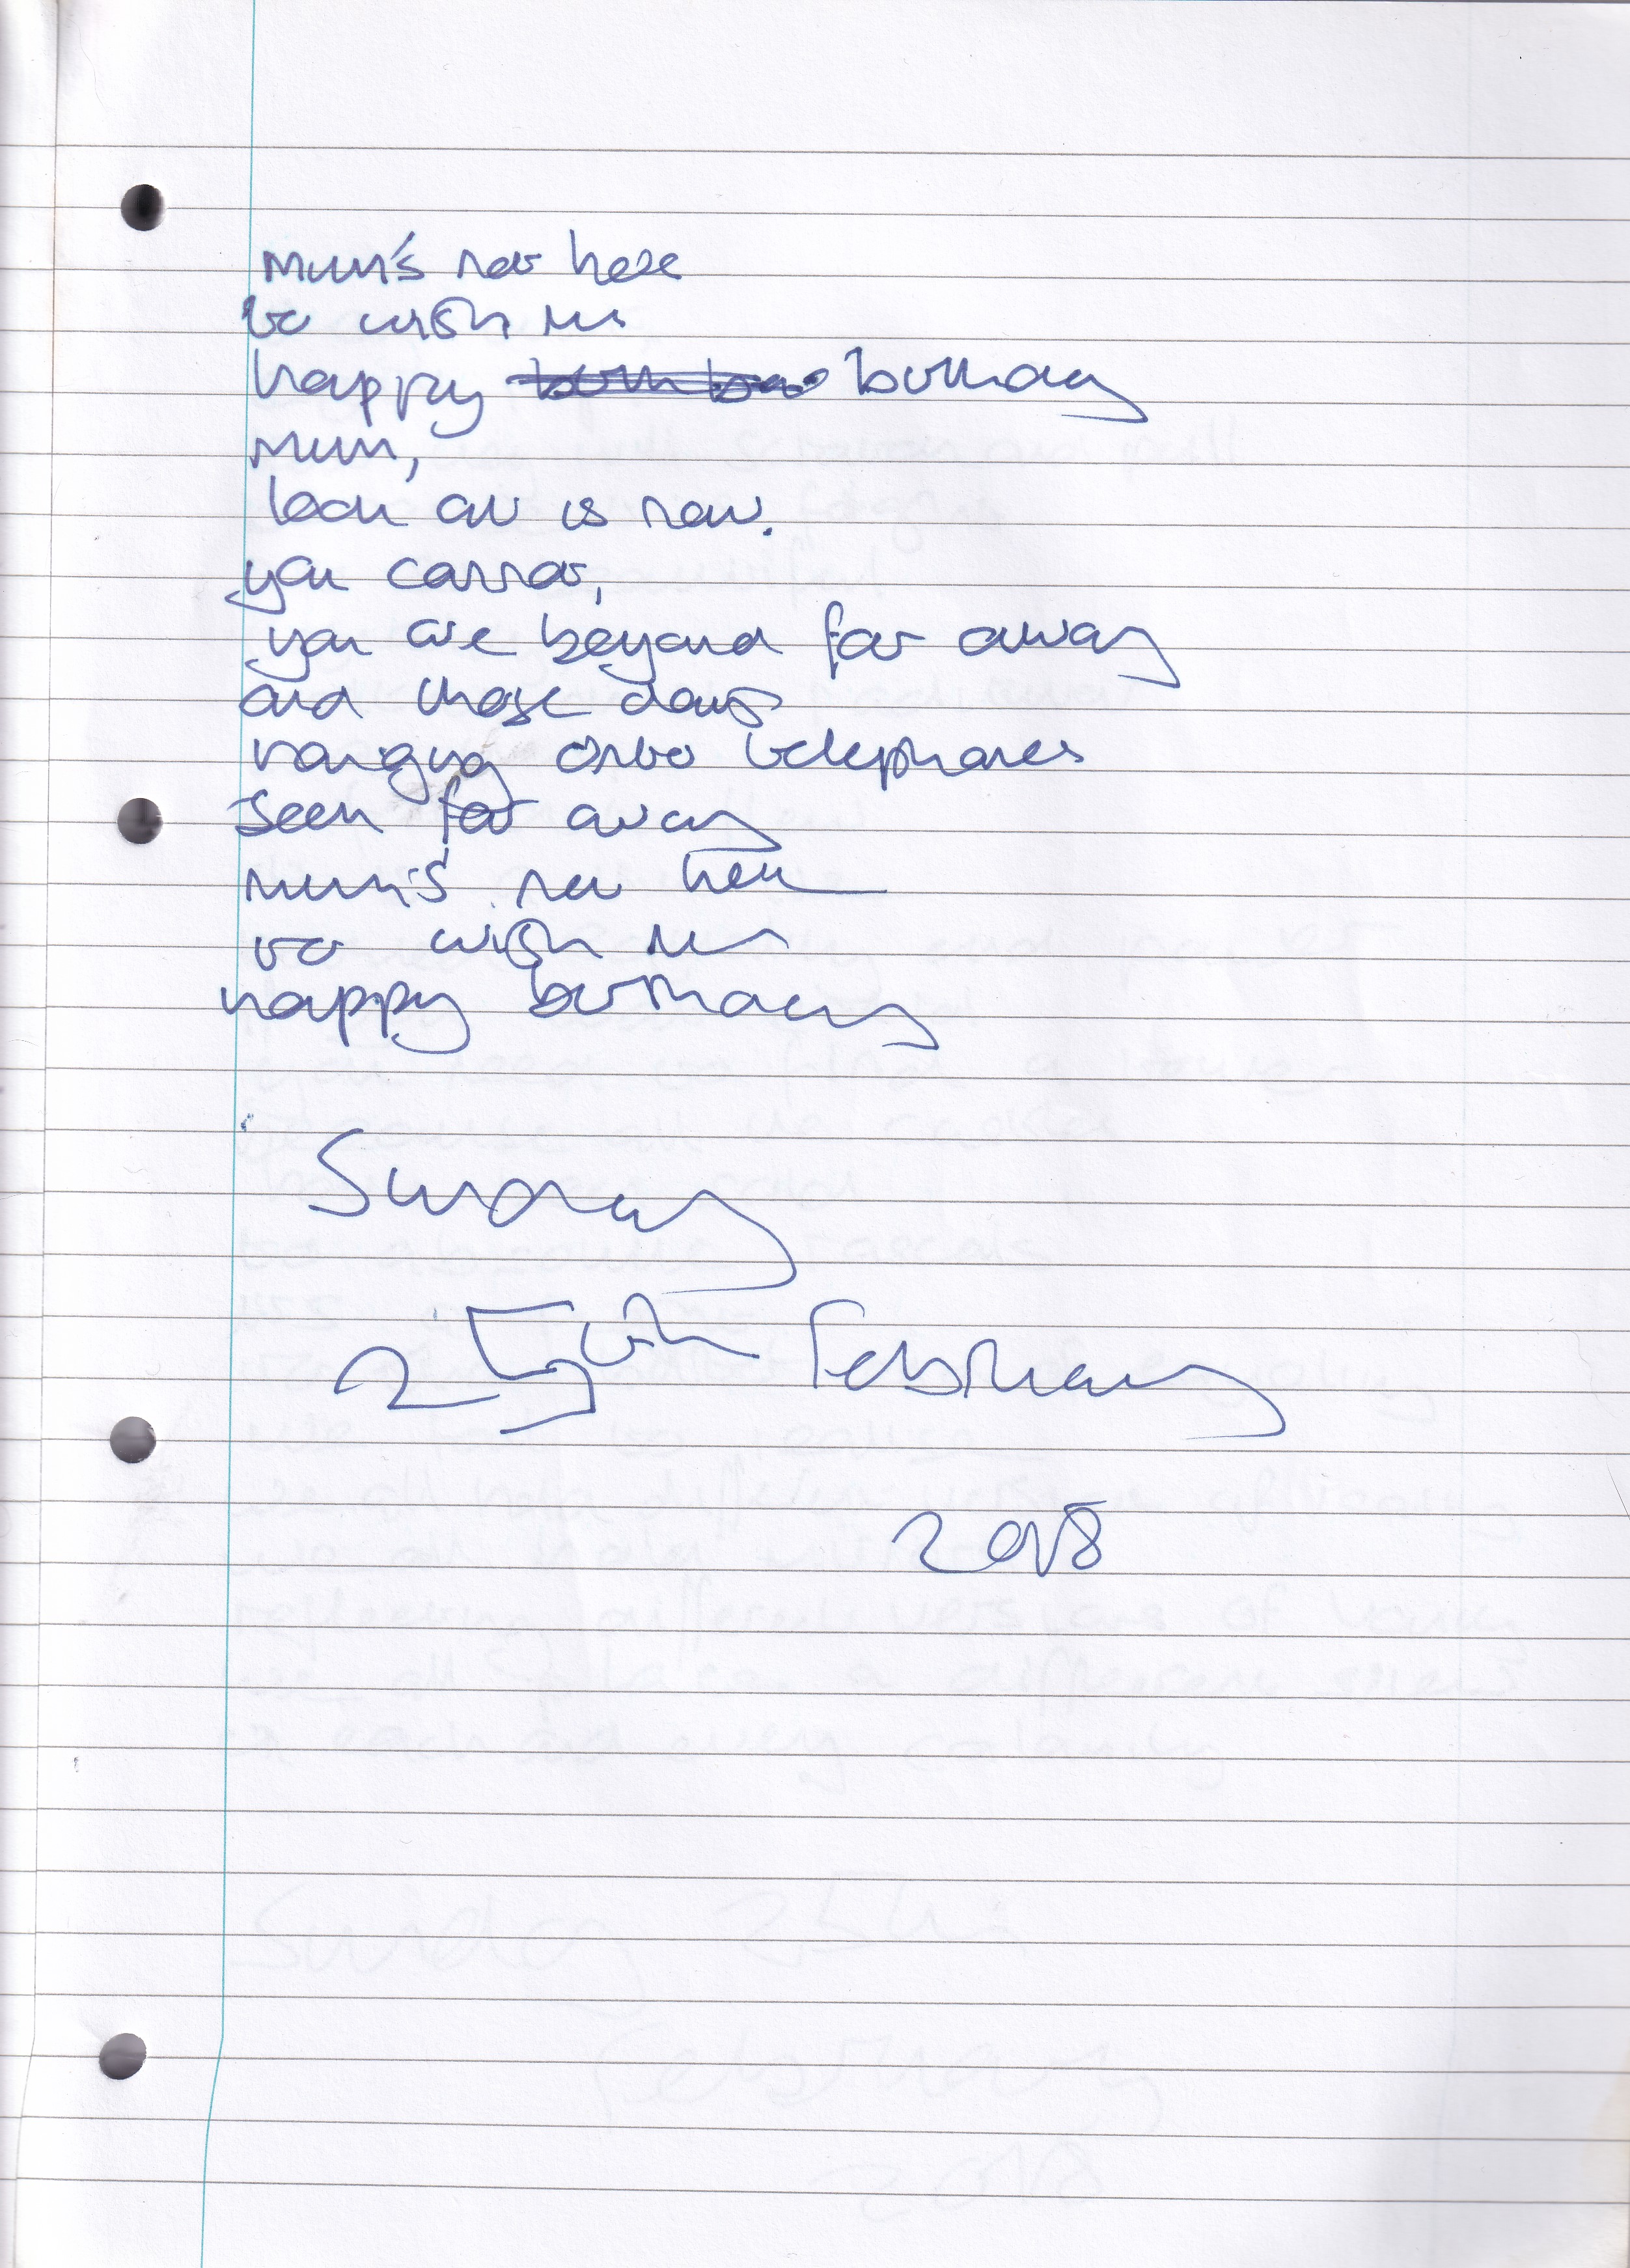 Mum's not here
to wish us
happy birthday
Mum,
look at us now.
you cannot,
you are beyond far away
and those days
ranging onto telephones
seem far away
mum's not here
to wish us
happy birthday
Sunday
25th February
2018